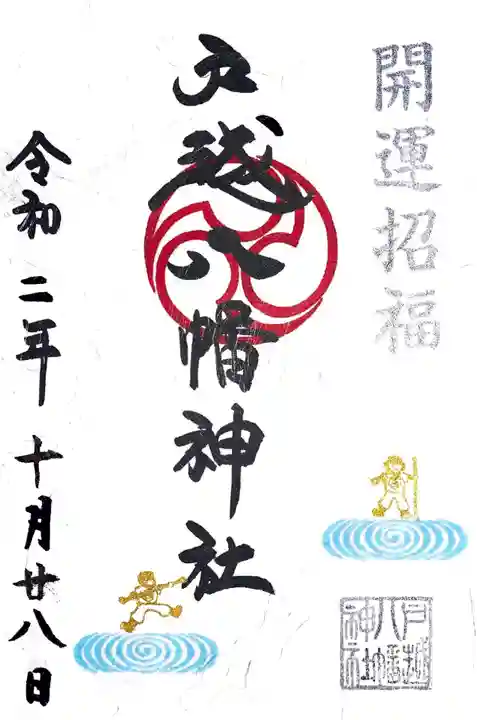 開運招福
戸越八幡神社
戸越八幡神社
令和二年十月廿八日